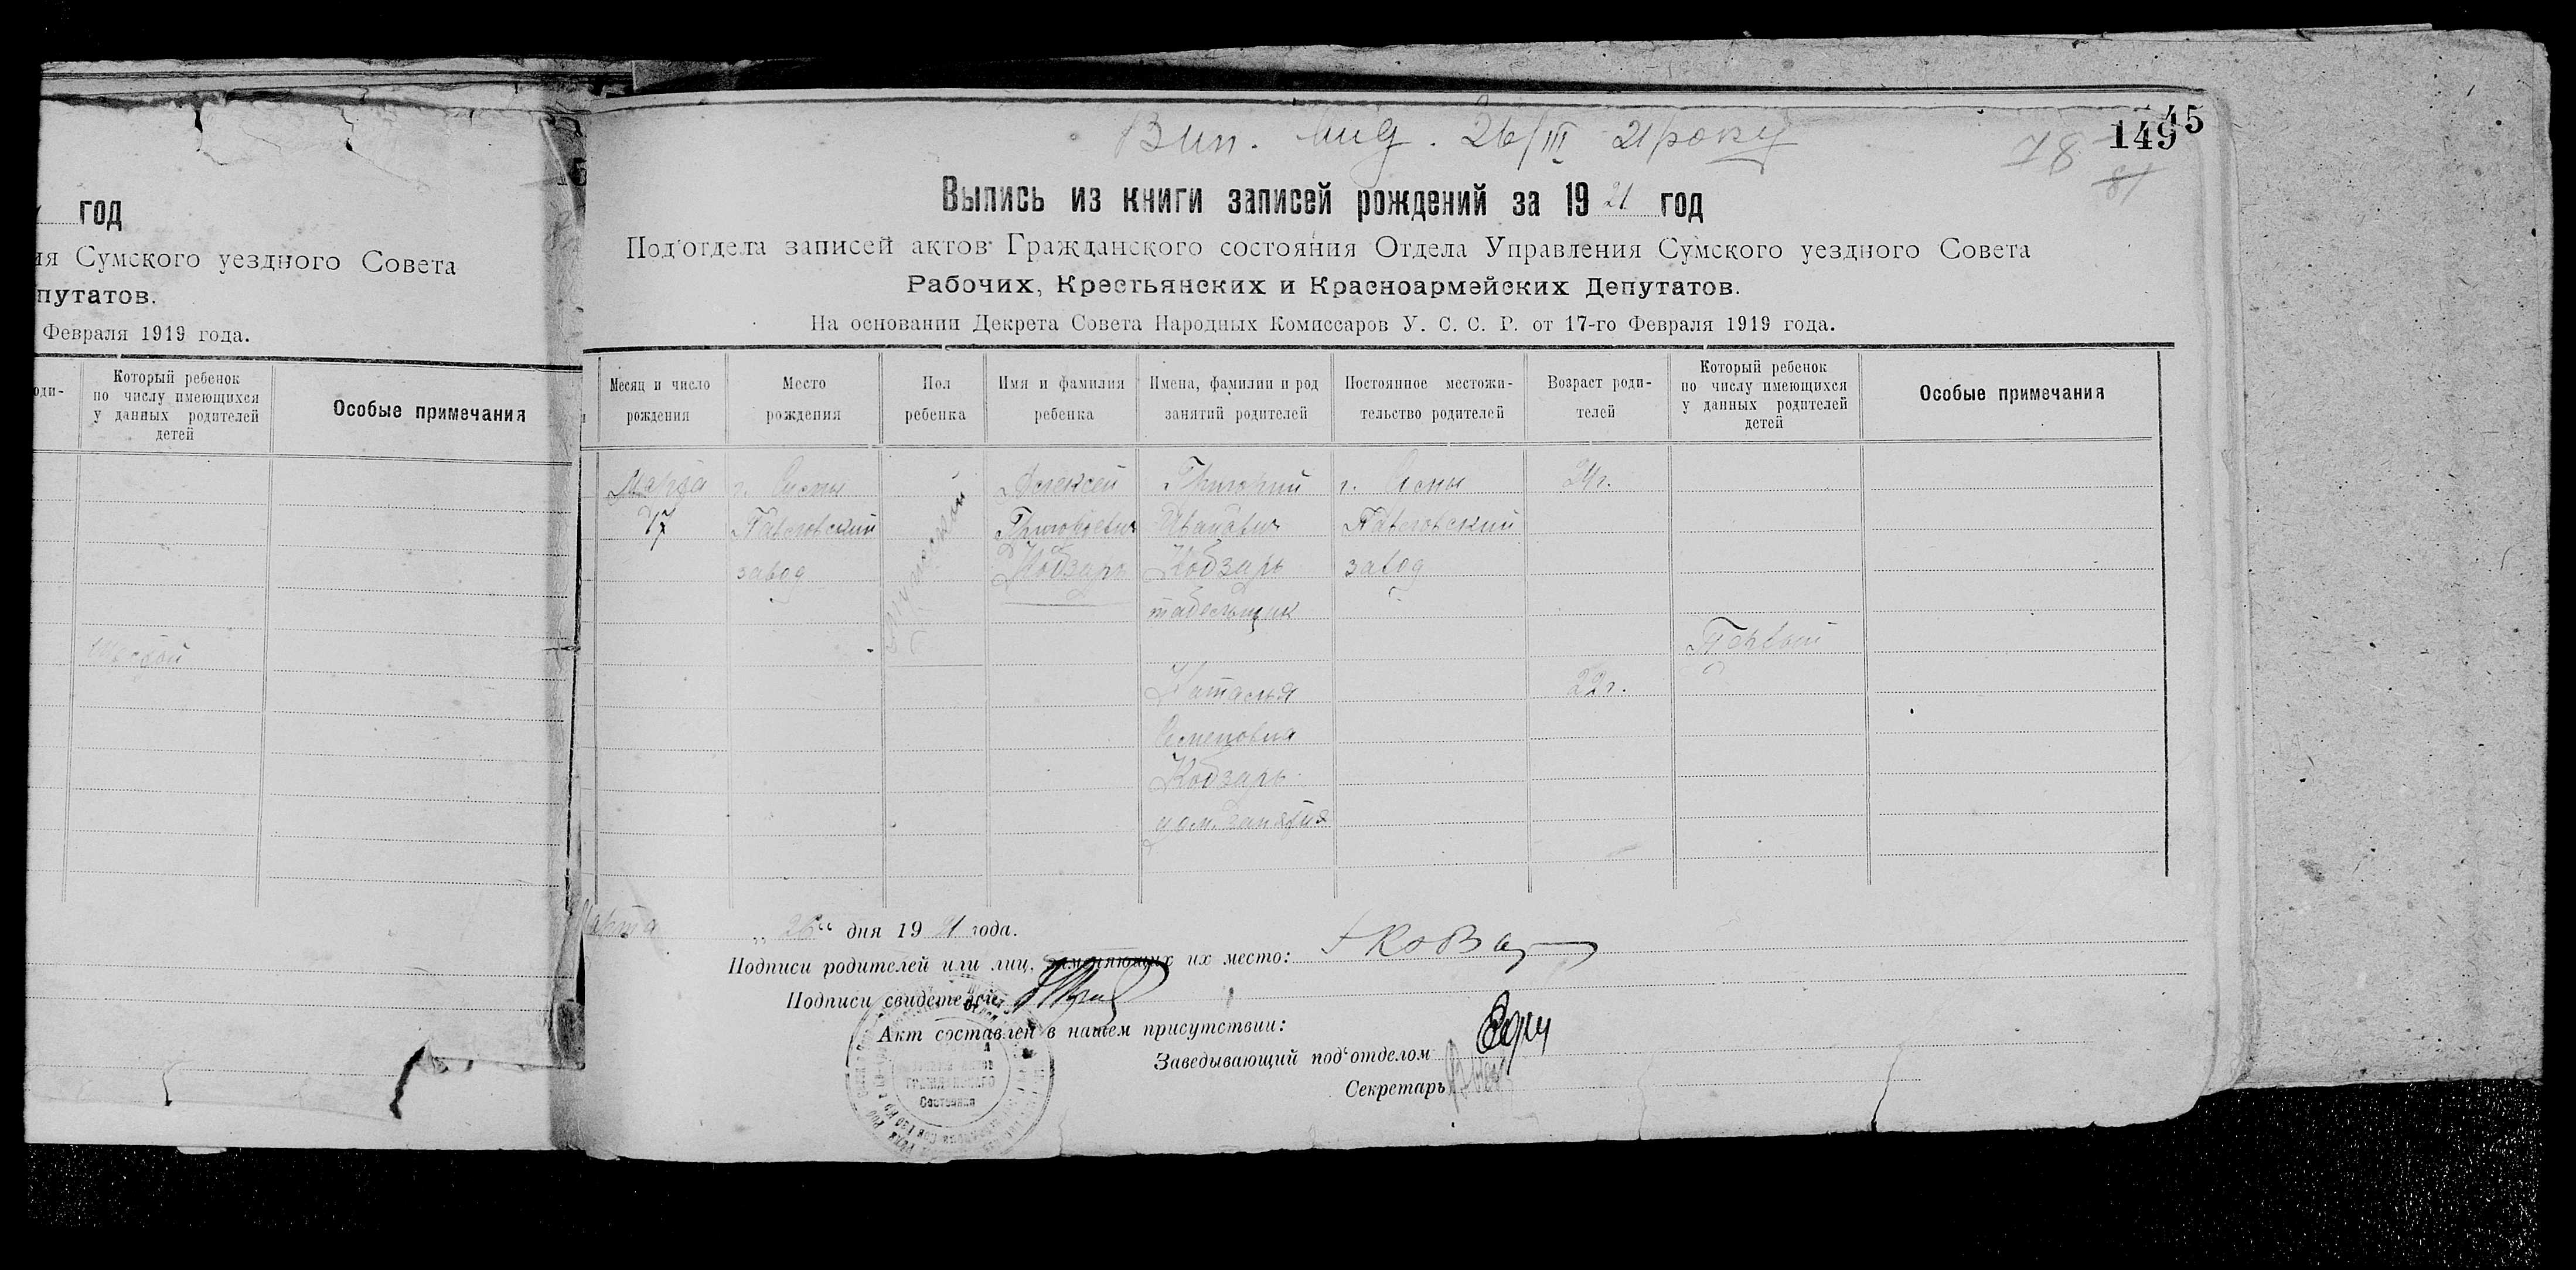 год
ия Сумского уездного Совета
путатов.
Февраля 1919 года.
оди-
Который ребенок
по числу имеющихся
у данных родителей
детей
Особые примечания
Вип. вид. 26/III 21 року
149
45
78
81
Выпись из книги записей рождений за 1921 год
Под'отдела записей актов Гражданского состояния Отдела Управления Сумского уездного Совета
Рабочих, Крестьянских и Красноармейских Депутатов.
На основании Декрета Совета Народных Комиссаров У. С. С. Р. от 17-го Февраля 1919 года.
Месяц и число
рождения
Место
рождения
Пол
ребенка
Имя и фамилия
ребенка
Имена, фамилии и род
занятий родителей
Постоянное местожи-
тельство родителей
Возраст роди-
телей
Который ребенок
по числу имеющихся
у данных родителей
детей
Особые примечания
Марта
17
г. Сумы
Павловский
завод
мужеской
Алексей
Григорьевич
Кобзарь
Григорий
Иванович
Кобзарь
табельщик
г. Сумы
Павловский
завод
24 г.
Первый
Наталья
Семеновна
Кобзарь
дом. занятия
22 г.
Марта „26“ дня 1921 года.
Подписи родителей или лиц, заменяющих их место:
Подписи свидетелей
Акт составлен в нашем присутствии:
Заведывающий под'отделом
Секретарь
Гражданского
Состояния